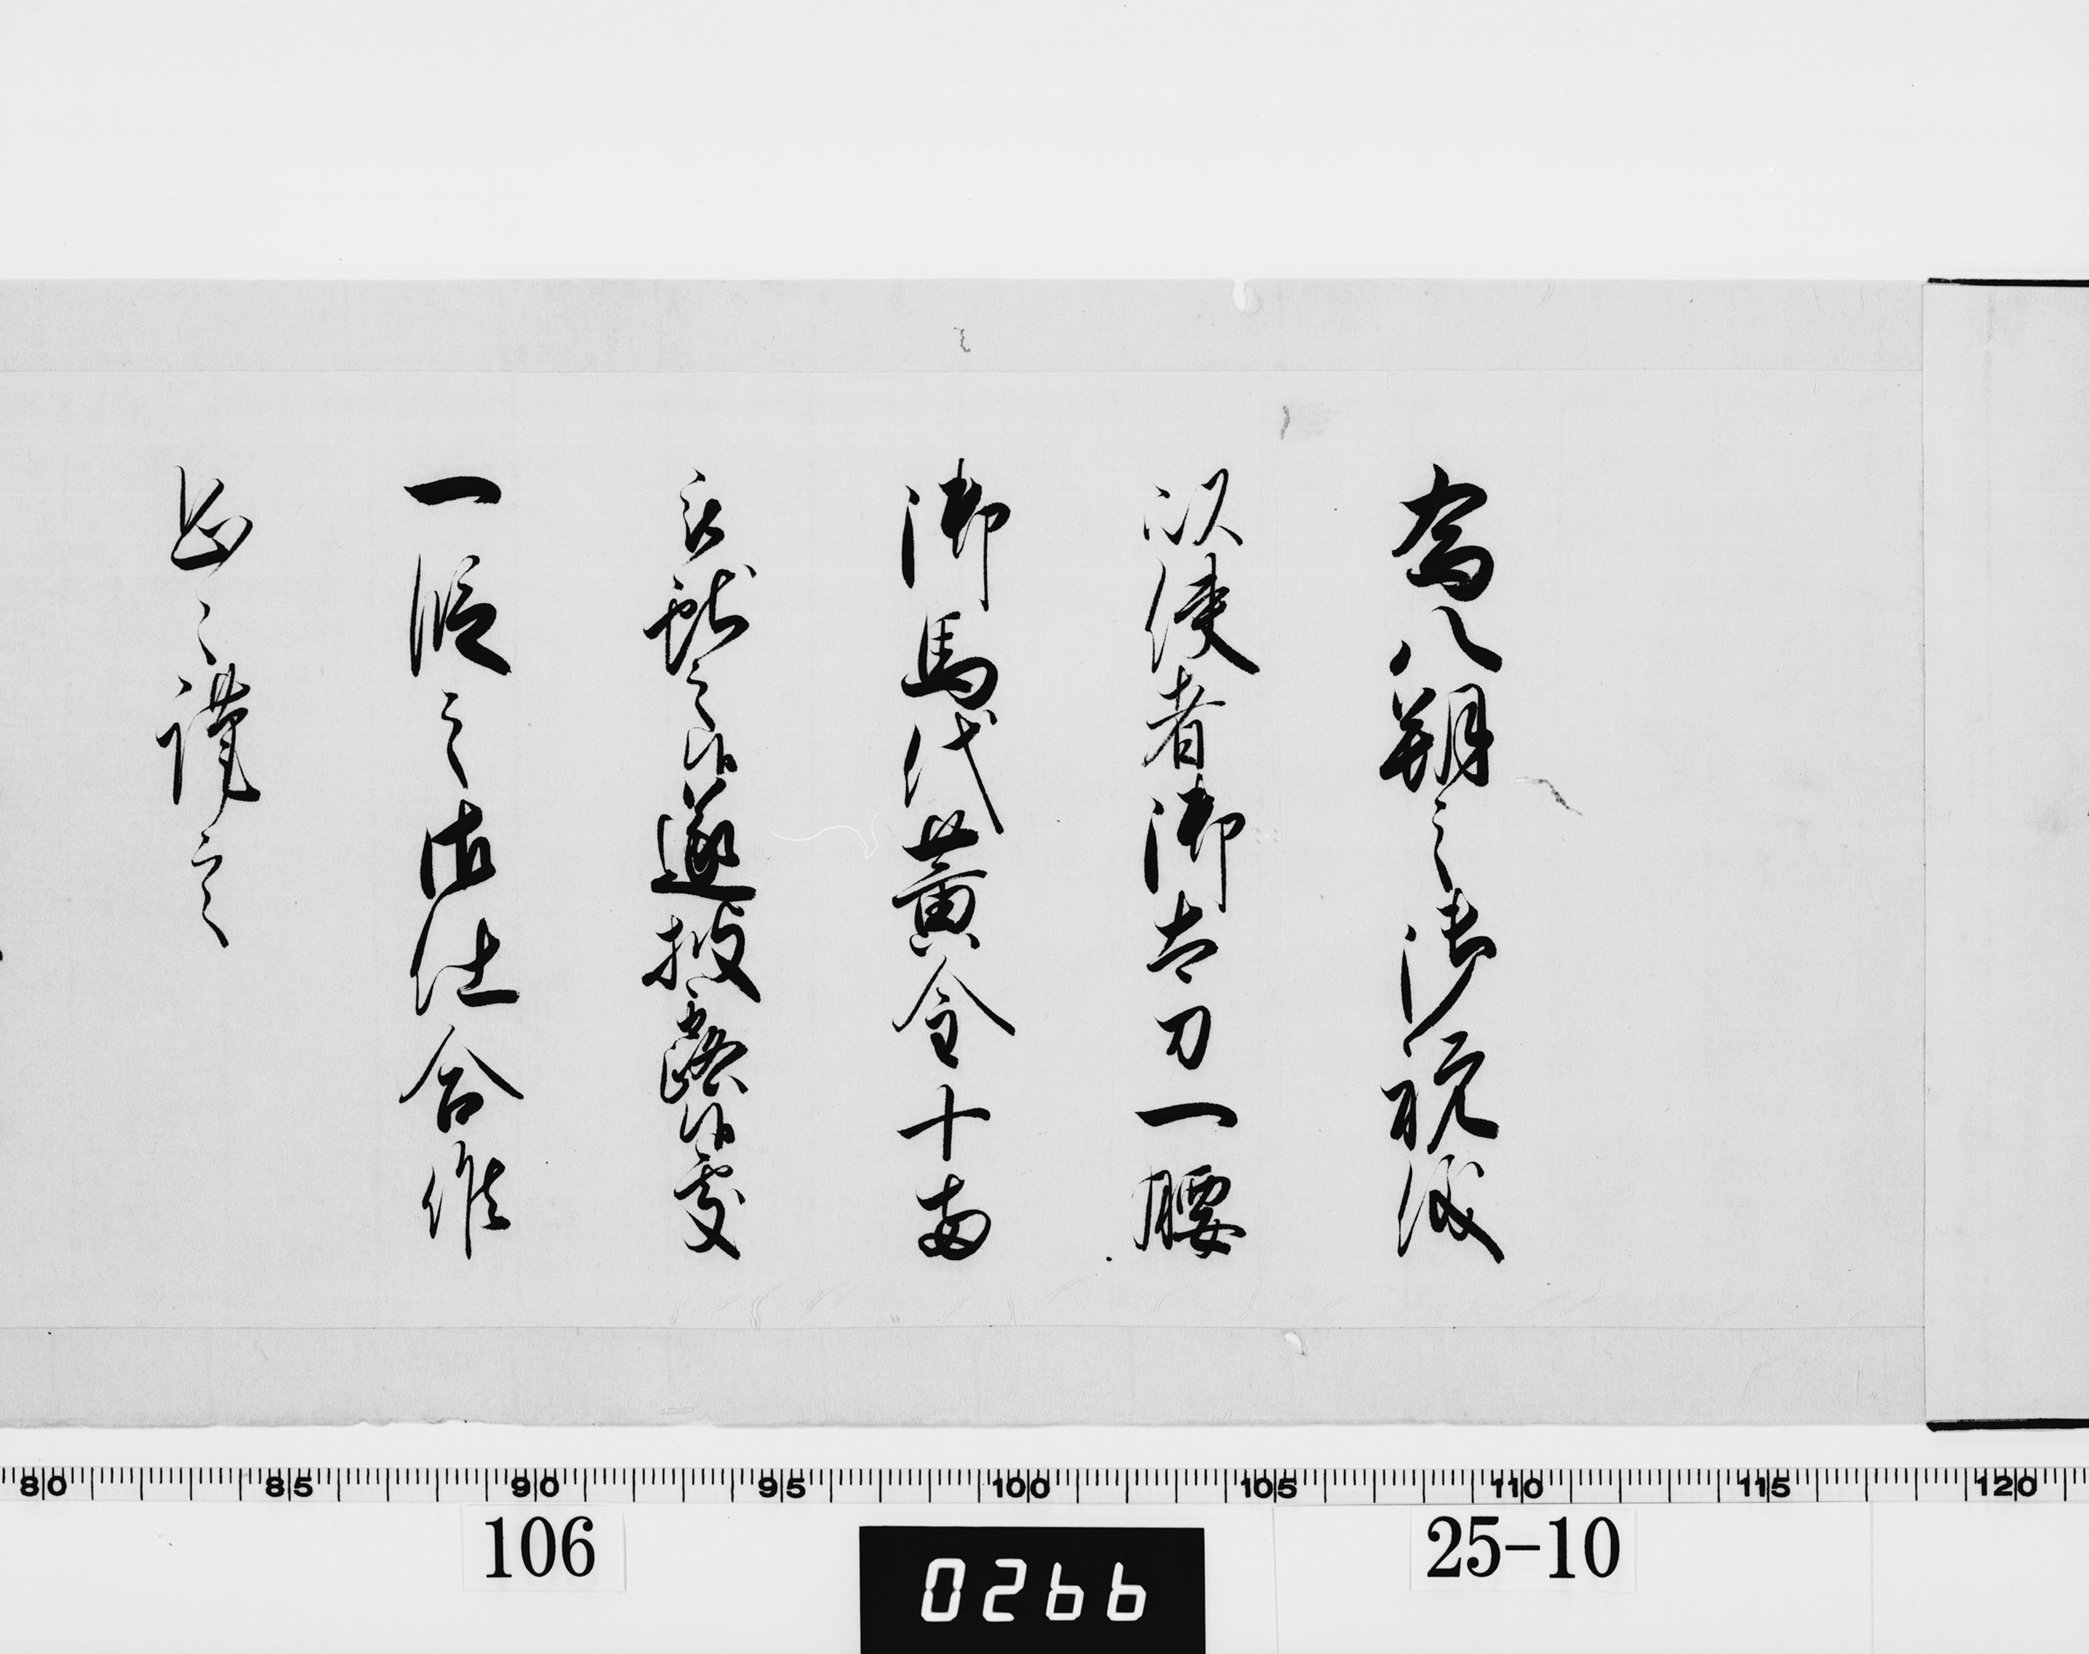 為八朔之御祝儀
以使者御太刀一腰
御馬代黄金十両
被獻之候遂披露候處
一段之御仕合候
恐々謹言
80 85 90 95 100 105 110 115 120
106
0266
25-10